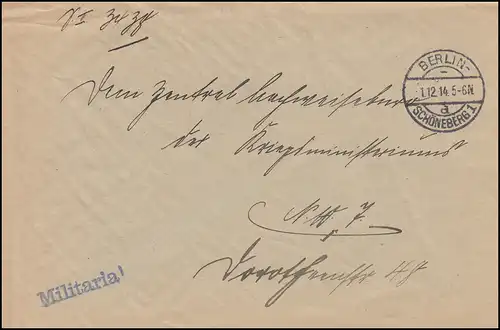 BERLIN-
1.12.14. 5-6N.
a
SCHÖNEBERG 1
Dem Zentral Nachweisebureau
des Kriegsministeriums
N.W. 7.
Dorotheenstr 48
Militaria!